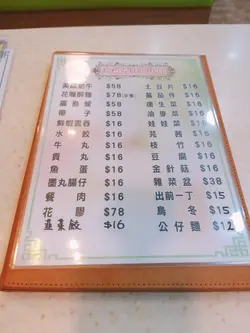 牛 $58 土豆片 $16
花雕醉雞 $78 $16
$58 唐生菜 $16
$58 油麥菜 $16
鮮蝦雲吞 $16 娃娃菜 $16
水餃 $16 芫茜 $16
牛丸 $16 枝竹 $16
貢丸 $16 豆腐 $16
魚蛋 $16 金針菇 $16
墨丸腸仔 $16 雜菜盆 $38
餐肉 $16 出前一丁 $15
花膠 $78 烏冬 $15
韮菜餃 $16 公仔麵 $12